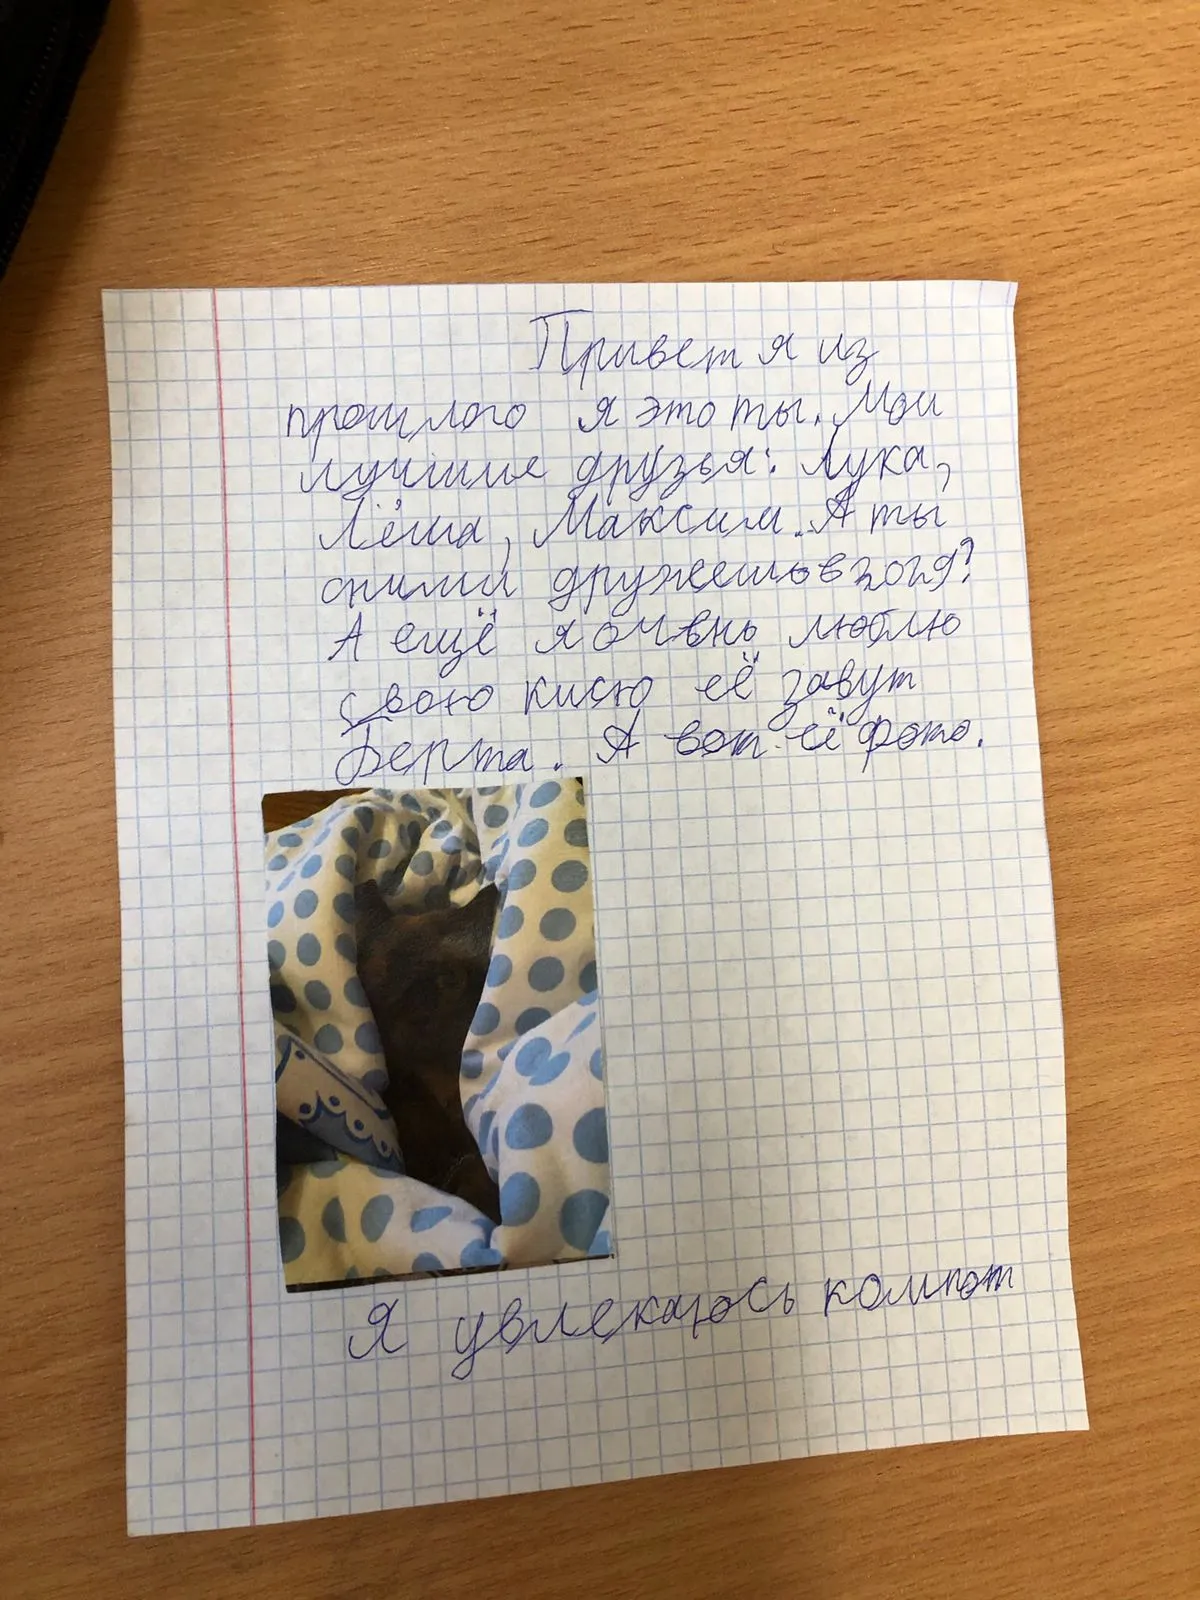 Привет я из
прошлого я это ты. Мои
лучшие друзья: Лука,
Лёша, Максим. А ты
сними дружешь
А ещё я очень люблю
свою кисю её завут
Берта. А вот её фото.
Я увлекаюсь компют